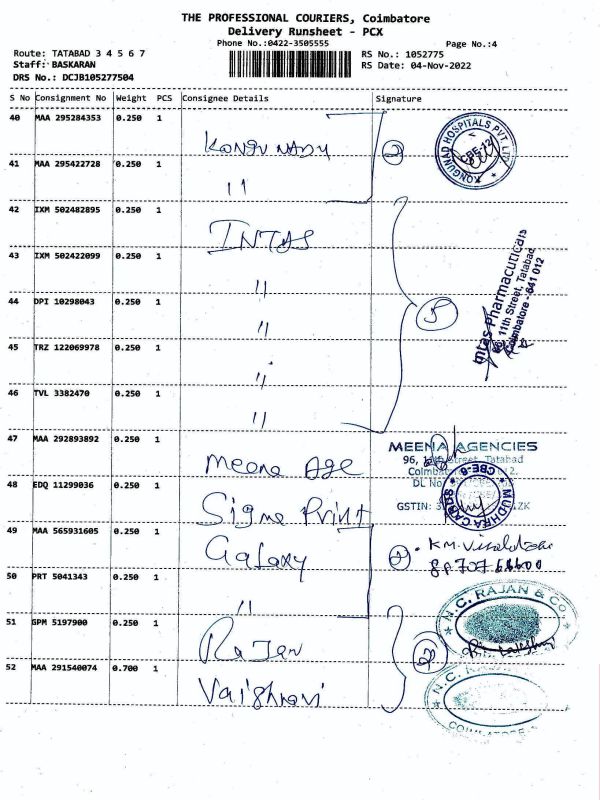 THE PROFESSIONAL COURIERS, Coimbatore
Delivery Runsheet - PCX
Phone No.:0422-3505555
Page No.:4
Route: TATABAD 3 4 5 6 7
RS No.: 1052775
Staff: BASKARAN
RS Date: 04-Nov-2022
DRS No.: DCJB105277504
S No Consignment No Weight PCS Consignee Details Signature
40 MAA 295284353 0.250 1 KONGU NADU
2
KONGUNAD HOSPITALS PVT. LTD.
CBE-12
41 MAA 295422728 0.250 1 "
42 IXM 502482895 0.250 1 INTAS
43 IXM 502422099 0.250 1 "
Intas Pharmaceuticals
11th Street, Tatabad
Coimbatore - 641 012
44 DPI 10298043 0.250 1 "
5
45 TRZ 122069978 0.250 1 "
46 TVL 3382470 0.250 1 "
47 MAA 292893892 0.250 1 Meena Age
MEENA AGENCIES
96, Street, Tatabad
DL No
GSTIN: 3
48 EDQ 11299036 0.250 1 Sigma Print
MUDHRA
CBE-
49 MAA 565931605 0.250 1 Galaxy
2
K.M.
50 PRT 5041343 0.250 1 "
51 GPM 5197900 0.250 1 Rajan
N.C. RAJAN & CO.
2
52 MAA 291540074 0.700 1 Vaishnavi
N.C. RAJAN
COIMBATORE